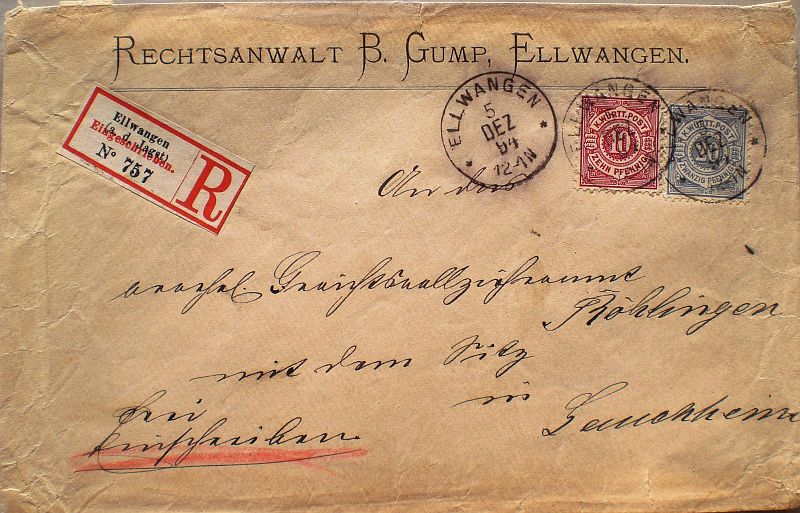 RECHTSANWALT B. GUMP, ELLWANGEN.
Ellwangen
(a. d. Jagst)
Eingeschrieben.
No 757
R
ELLWANGEN
5
DEZ
94
12-1N
ELLWANGEN
K.WÜRTT.POST
10
ZEHN PFENNIG
WANGEN
DEZ
K.WÜRTT.POST
20
ZWANZIG PFENNIG
An das
Gerichtsvollzieheramt
Röhlingen
mit dem Sitz
in
Lauchheim
frei
Einschreiben.